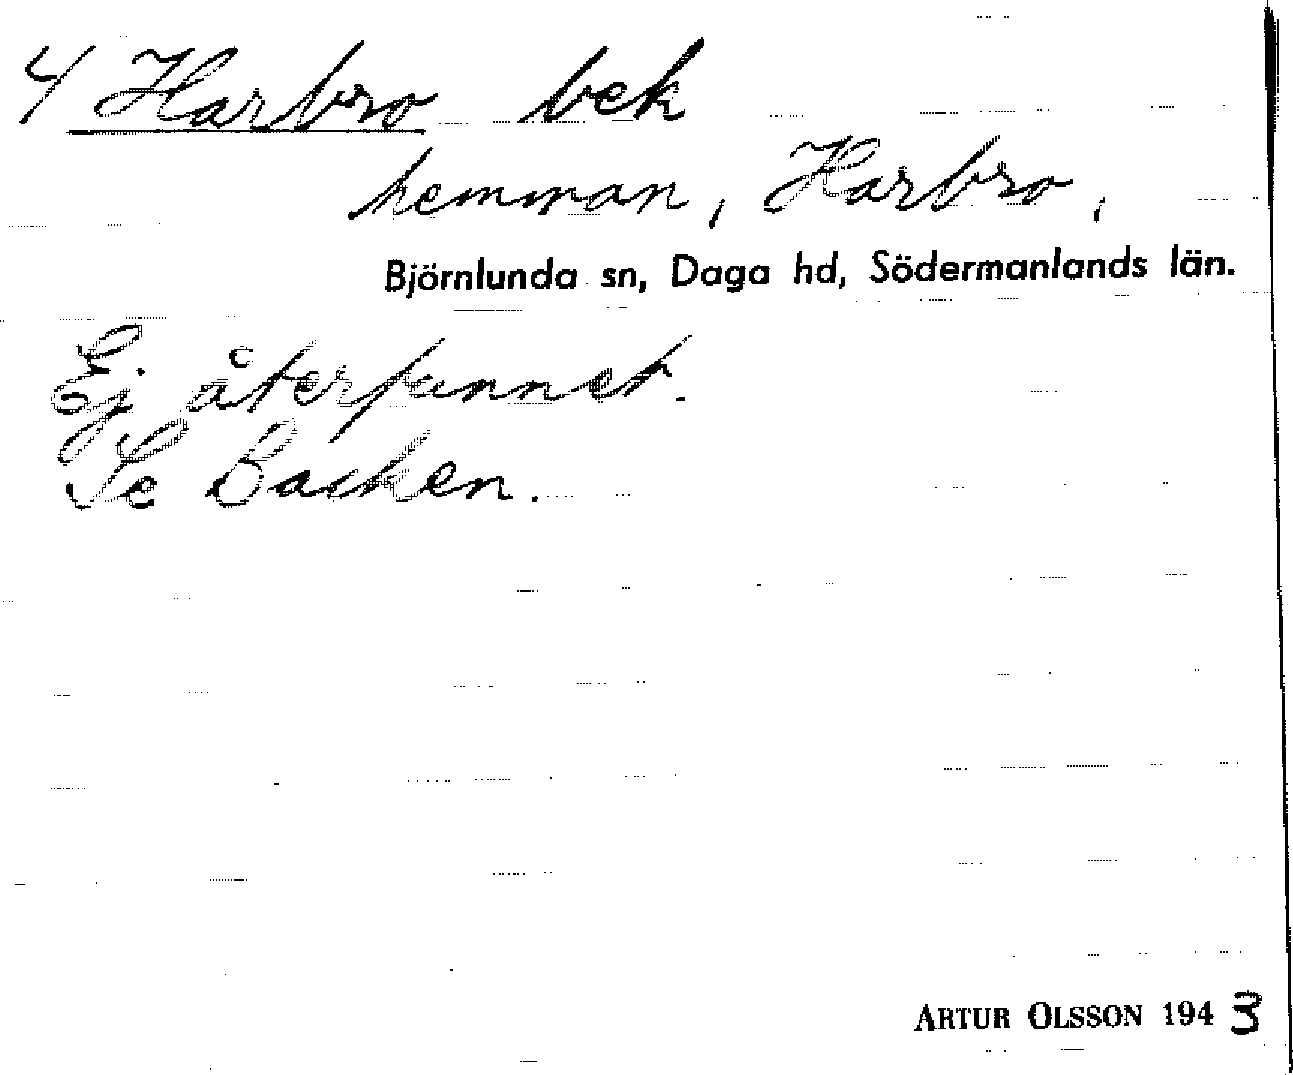 4/ Harbro bek
hemman, Harbro,
Björnlunda sn, Daga hd, Södermanlands län.
Ej återfunnet.
Se Backen.
ARTUR OLSSON 1943